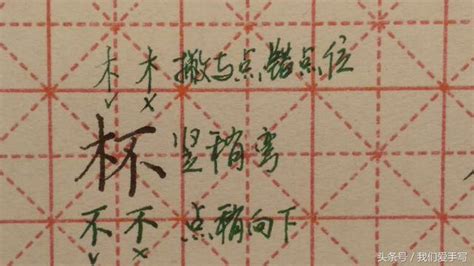 木 木 撇与点错点位
√ ×
杯 竖稍弯
不 不 点稍向下
√ ×
头条号 / 我们爱手写